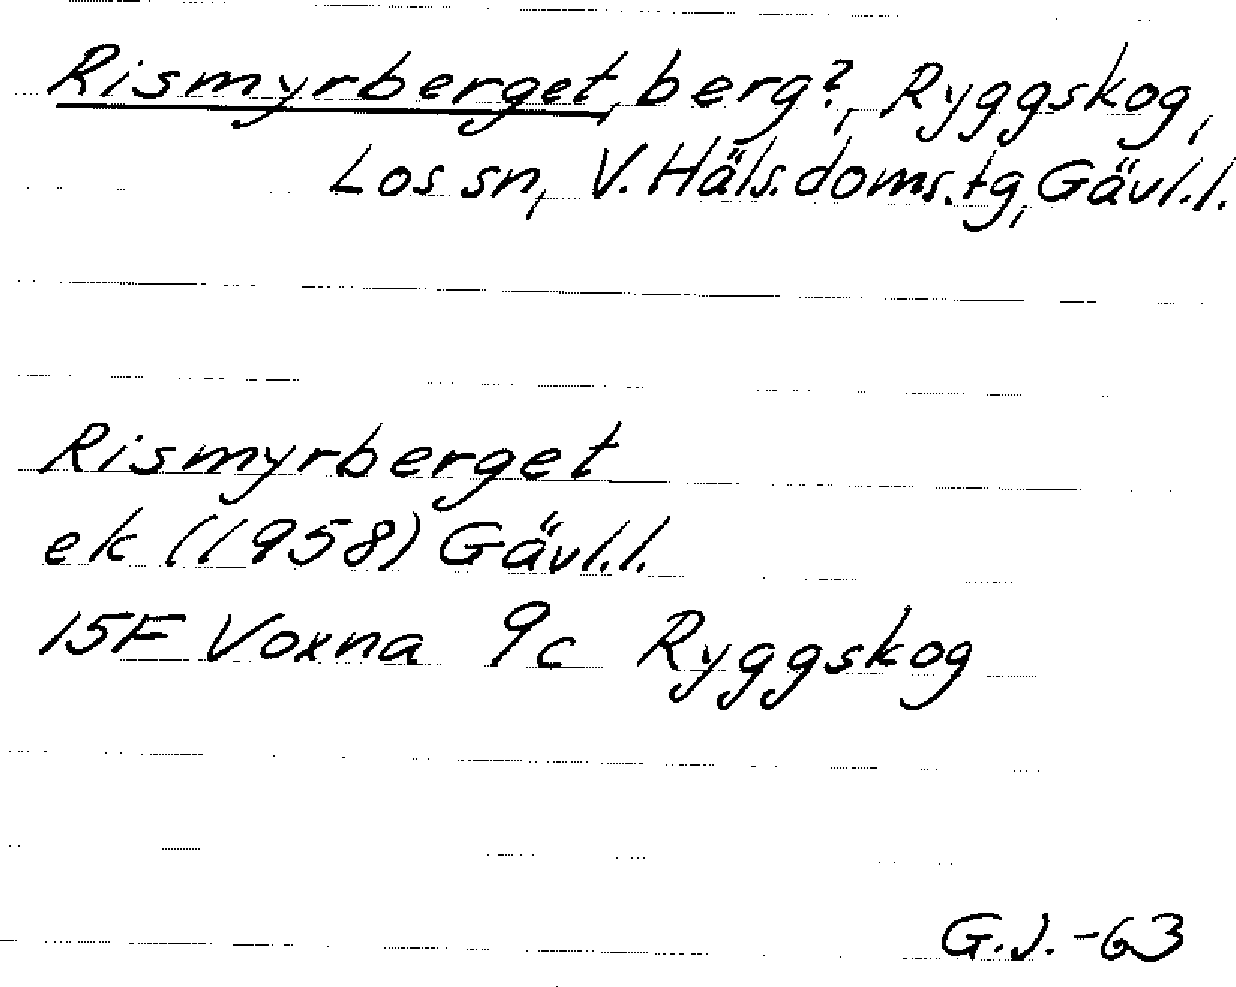 Rismyrberget, berg?, Ryggskog,
Los sn, V. Häls. doms. tg, Gävl.l.
Rismyrberget
ek (1958) Gävl.l.
15F Voxna 9c Ryggskog
G.J. -63